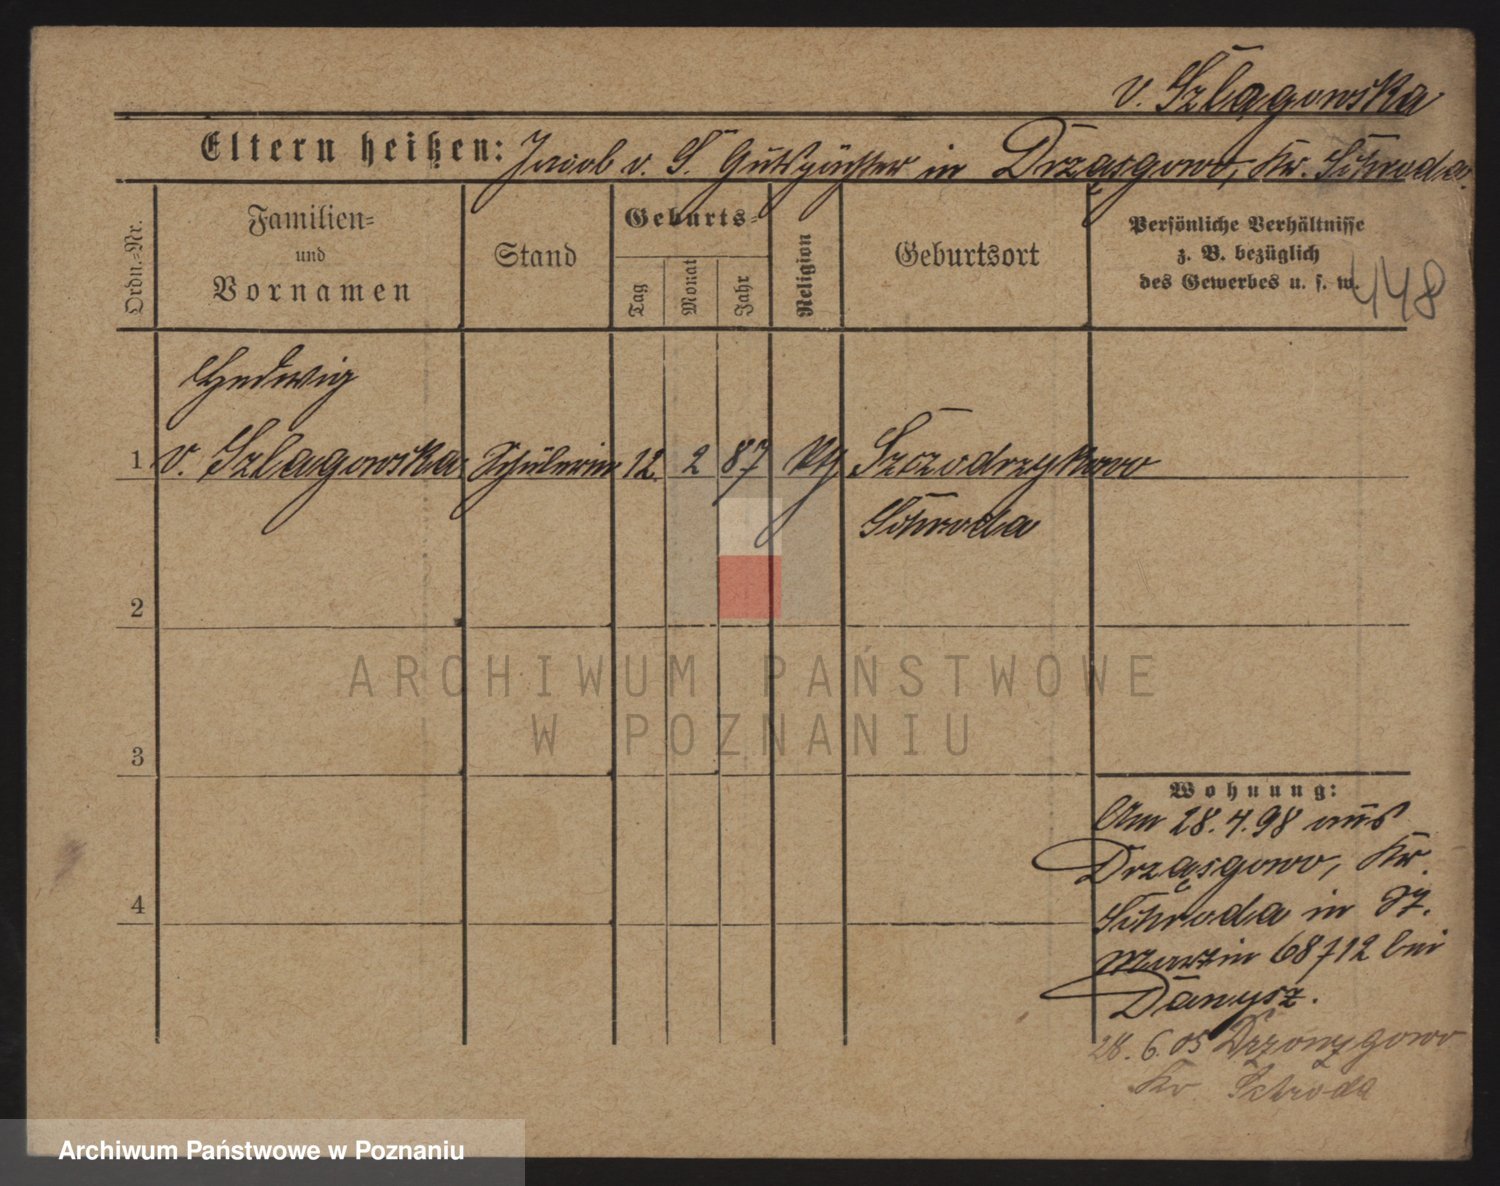 v. Szlągowska
Eltern heißen: Jacob v. S. Gutspächter in Drząsgowo, Kr. Schroda.
Ordn.-Nr.
Familien-
und
Vornamen
Stand
Geburts-
Tag
Monat
Jahr
Religion
Geburtsort
Persönliche Verhältnisse
z. B. bezüglich
des Gewerbes u. s. w.
448
Hedwig
1 v. Szlagowska Schülerin 12. 2 87 Szczodrzykowo
Schroda
2
3
4
Wohnung:
Am 28.4.98 aus
Drząsgowo, Kr.
Schroda in St.
Martin 68/12 bei
Danysz.
28.6.05
Kr. Schroda
ARCHIWUM PAŃSTWOWE
W POZNANIU
Archiwum Państwowe w Poznaniu